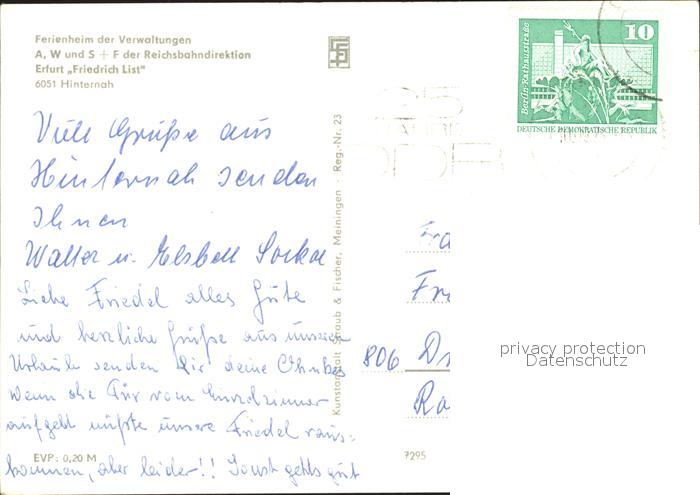 Ferienheim der Verwaltungen
A, W und S + F der Reichsbahndirektion
Erfurt „Friedrich List"
6051 Hinternah
10
Berlin-Rathausstraße
DEUTSCHE DEMOKRATISCHE REPUBLIK
25
JAHRE
DDR
Viele Grüße aus
Hinternah senden
Ihnen
Walter u. Elsbett
Liebe Friedel alles Gute
und herzliche Grüße aus unserem
Urlaub senden Dir deine
Wenn die Tür vom Einzelzimmer
aufgeht müßte unsere Friedel raus-
kommen, aber leider!! Sonst gehts gut
Kunstanstalt Straub & Fischer, Meiningen Reg.-Nr. 23
Fra
Fri
806 Dr
Ra
privacy protection
Datenschutz
EVP: 0,20 M
7295